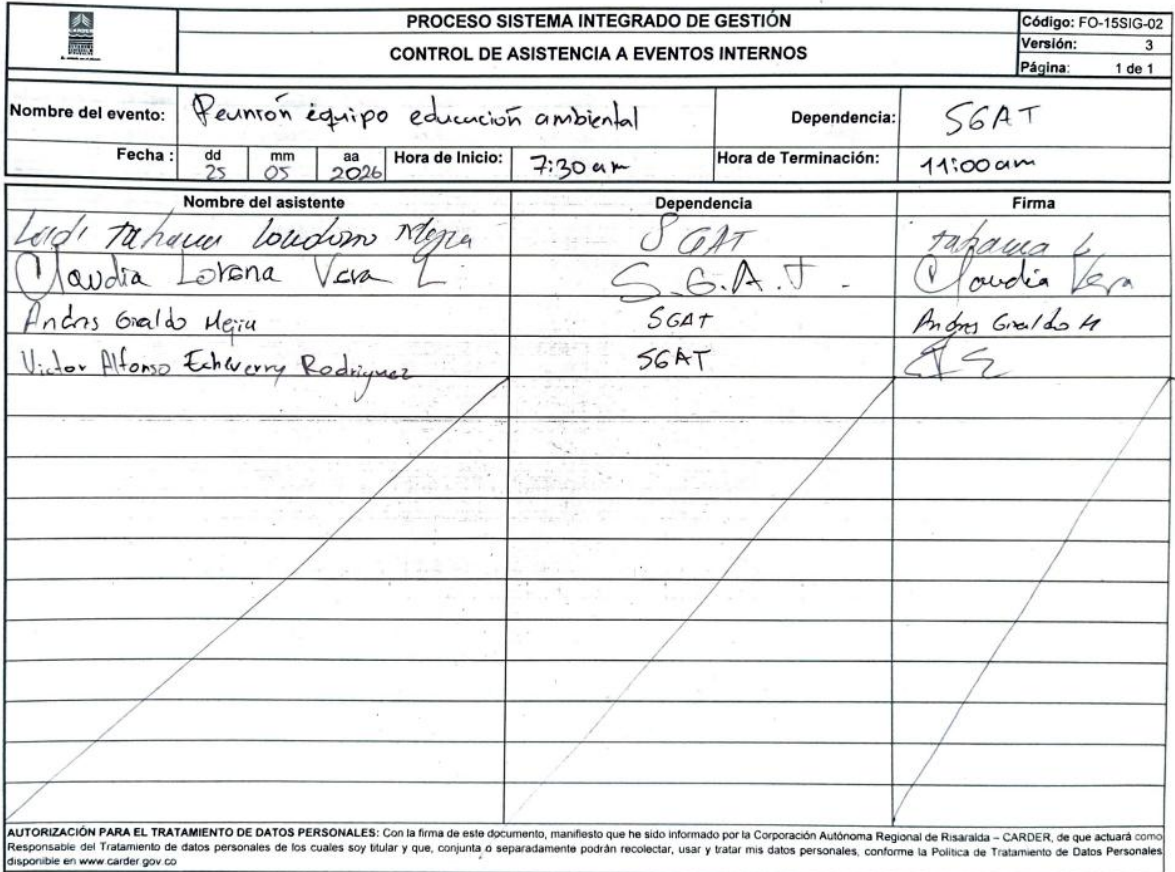 CARDER
PROCESO SISTEMA INTEGRADO DE GESTIÓN
CONTROL DE ASISTENCIA A EVENTOS INTERNOS
Código: FO-15SIG-02
Versión: 3
Página: 1 de 1
Nombre del evento: Reunión équipo educación ambiental Dependencia: SGAT
Fecha : dd 25 mm 05 aa 2026 Hora de Inicio: 7:30 am Hora de Terminación: 11:00 am
Nombre del asistente Dependencia Firma
Leidi Tahana Londoño Mejia SGAT Tahana L
Claudia Lorena Vera L S.G.A.T. Claudia Vera
Andres Giraldo Mejia SGAT Andres Giraldo M
Victor Alfonso Echeverry Rodriguez SGAT
AUTORIZACIÓN PARA EL TRATAMIENTO DE DATOS PERSONALES: Con la firma de este documento, manifiesto que he sido informado por la Corporación Autónoma Regional de Risaralda – CARDER, de que actuará como
Responsable del Tratamiento de datos personales de los cuales soy titular y que, conjunta o separadamente podrán recolectar, usar y tratar mis datos personales, conforme la Política de Tratamiento de Datos Personales
disponible en www.carder.gov.co